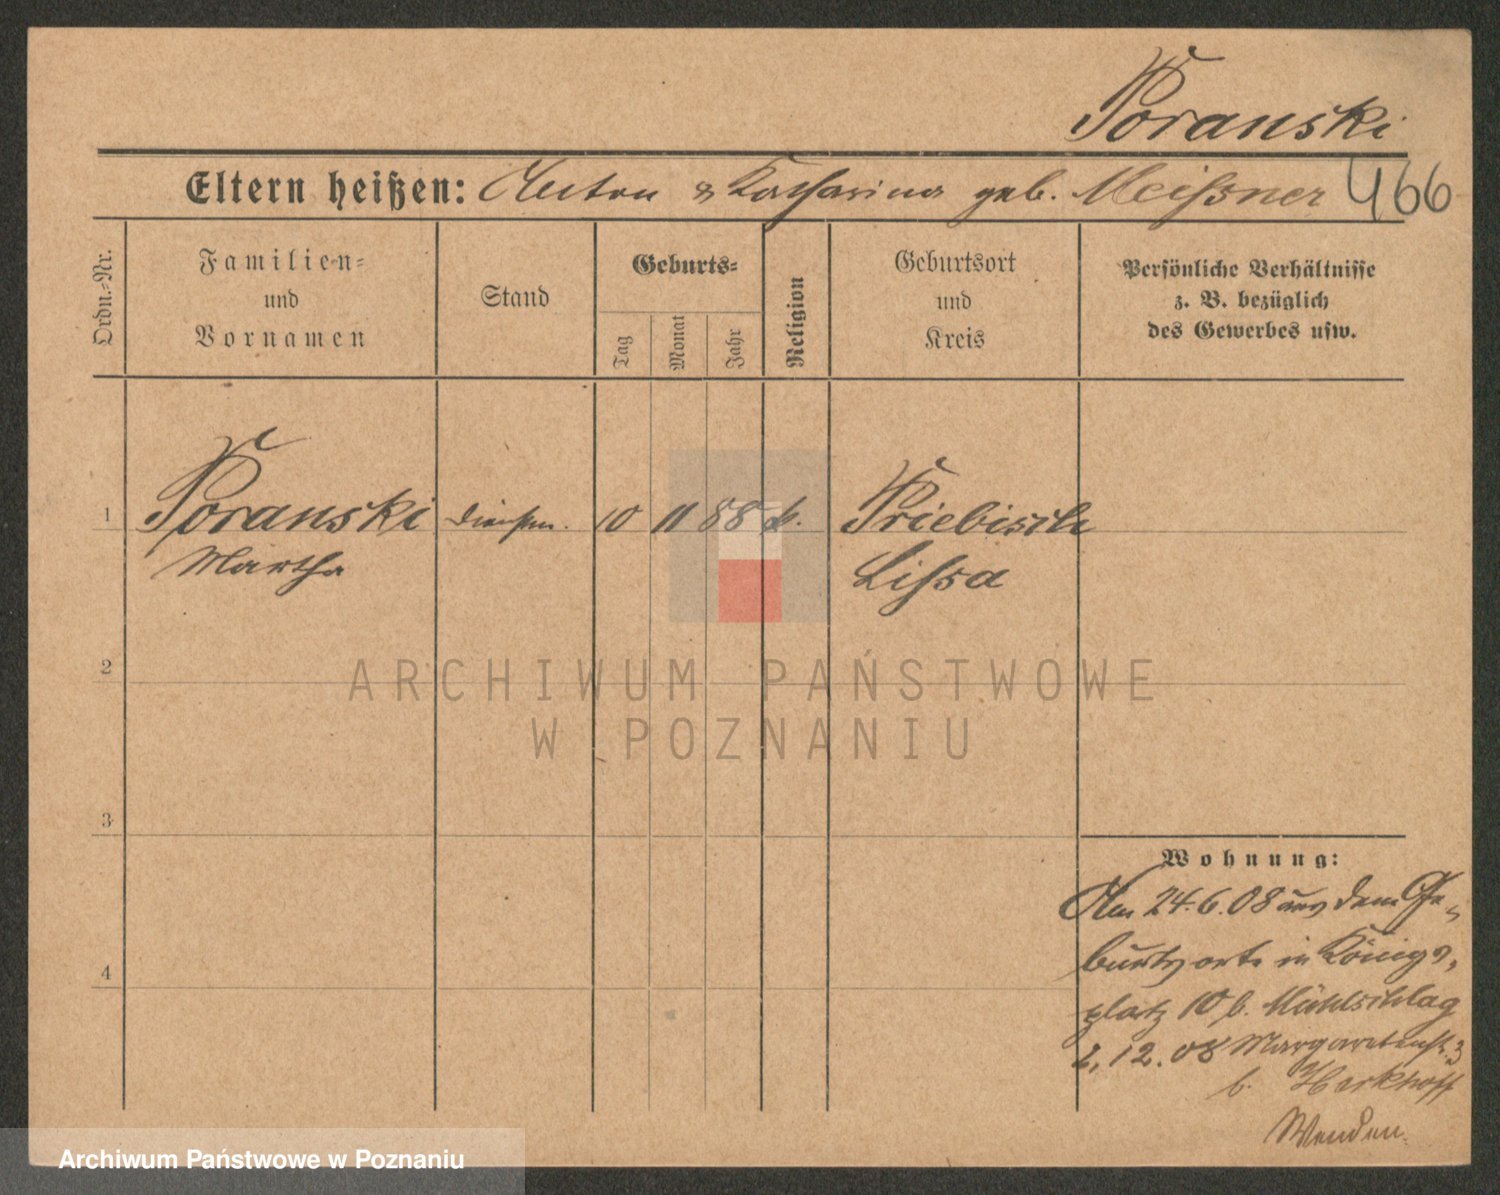 Poranski
Eltern heißen: Anton & Katharina geb. Meißner 466
Ordn.-Nr.
Familien-
und
Vornamen
Stand
Geburts-
Tag
Monat
Jahr
Religion
Geburtsort
und
Kreis
Persönliche Verhältnisse
z. B. bezüglich
des Gewerbes usw.
1 Poranski 10 11 88 k. Priebisch
Martha Lissa
2
3
4
Wohnung:
Am 24.6.08 aus dem Ge-
burtsorte in Königs-
platz 10 b. Mühlschlag
2.12.08 Margaretenstr. 3
b. Herkhoff
Wenden.
ARCHIWUM PAŃSTWOWE
W POZNANIU
Archiwum Państwowe w Poznaniu